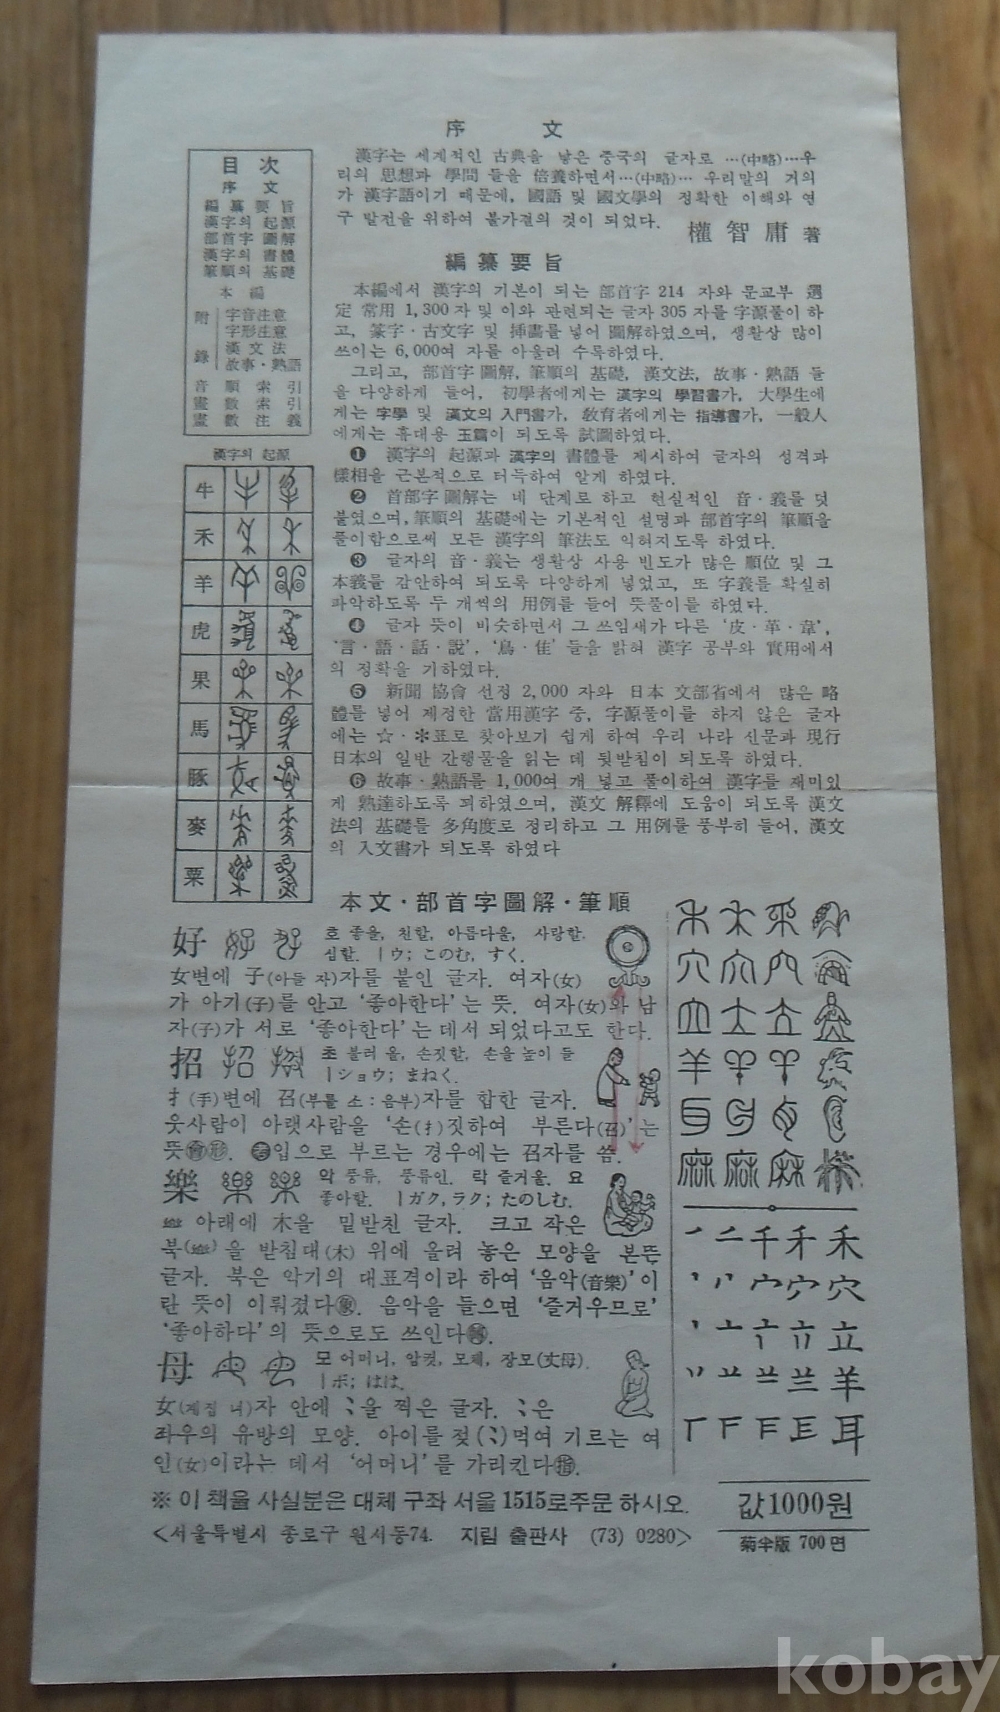 序 文
漢字는 세계적인 古典을 낳은 중국의 글자로 …(中略)…우
리의 思想과 學問 들을 倍養하면서…(中略)… 우리말의 거의
가 漢字語이기 때문에, 國語 및 國文學의 정확한 이해와 연
구 발전을 위하여 불가결의 것이 되었다.
權智庸 著
目 次
序 文
編 纂 要 旨
漢字의 起源
部首字 圖解
漢字의 書體
筆順의 基礎
本 編
附 錄
字音注意
字形注意
漢 文 法
故事·熟語
音 順 索 引
畫 數 索 引
畫 數 注 義
漢字의 起源
牛
禾
羊
虎
果
馬
豚
麥
粟
編 纂 要 旨
本編에서 漢字의 기본이 되는 部首字 214 자와 문교부 選
定 常用 1,300 자 및 이와 관련되는 글자 305 자를 字源풀이 하
고, 篆字·古文字 및 挿畵를 넣어 圖解하였으며, 생활상 많이
쓰이는 6,000여 자를 아울러 수록하였다.
그리고, 部首字 圖解, 筆順의 基礎, 漢文法, 故事·熟語 들
을 다양하게 들어, 初學者에게는 漢字의 學習書가, 大學生에
게는 字學 및 漢文의 入門書가, 敎育者에게는 指導書가, 一般人
에게는 휴대용 玉篇이 되도록 試圖하였다.
❶ 漢字의 起源과 漢字의 書體를 제시하여 글자의 성격과
樣相을 근본적으로 터득하여 알게 하였다.
❷ 首部字 圖解는 네 단계로 하고 현실적인 音·義를 덧
붙였으며, 筆順의 基礎에는 기본적인 설명과 部首字의 筆順을
풀이함으로써 모든 漢字의 筆法도 익혀지도록 하였다.
❸ 글자의 音·義는 생활상 사용 빈도가 많은 順位 및 그
本義를 감안하여 되도록 다양하게 넣었고, 또 字義를 확실히
파악하도록 두 개씩의 用例를 들어 뜻풀이를 하였다.
❹ 글자 뜻이 비슷하면서 그 쓰임새가 다른 '皮·革·韋',
'言·語·話·說', '鳥·隹' 들을 밝혀 漢字 공부와 實用에서
의 정확을 기하였다.
❺ 新聞 協會 선정 2,000 자와 日本 文部省에서 많은 略
體를 넣어 제정한 當用漢字 중, 字源풀이를 하지 않은 글자
에는 ☆·✻표로 찾아보기 쉽게 하여 우리 나라 신문과 現行
日本의 일반 간행물을 읽는 데 뒷받침이 되도록 하였다.
❻ 故事·熟語를 1,000여 개 넣고 풀이하여 漢字를 재미있
게 熟達하도록 꾀하였으며, 漢文 解釋에 도움이 되도록 漢文
法의 基礎를 多角度로 정리하고 그 用例를 풍부히 들어, 漢文
의 入文書가 되도록 하였다
本文·部首字圖解·筆順
好 호 좋을, 친할, 아름다울, 사랑할.
심할. ㅣウ; このむ, すく.
女변에 子(아들 자)자를 붙인 글자. 여자(女)
가 아기(子)를 안고 '좋아한다'는 뜻. 여자(女)와 남
자(子)가 서로 '좋아한다'는 데서 되었다고도 한다.
招 초 불러 올, 손짓할, 손을 높이 들
ㅣショウ; まねく.
扌(手)변에 召(부를 소:음부)자를 합한 글자.
웃사람이 아랫사람을 '손(扌)짓하여 부른다(召)'는
뜻㊟. 입으로 부르는 경우에는 召자를 씀.
樂 악 풍류, 풍류인. 락 즐거울. 요
좋아할. ㅣガク, ラク; たのしむ.
아래에 木을 밑받친 글자. 크고 작은
북을 받침대(木) 위에 올려 놓은 모양을 본뜬
글자. 북은 악기의 대표격이라 하여 '음악(音樂)'이
란 뜻이 이뤄졌다(象). 음악을 들으면 '즐거우므로'
'좋아하다'의 뜻으로도 쓰인다(轉).
母 모 어머니, 암컷, 모체, 장모(丈母).
ㅣボ; はは.
女(계집 녀)자 안에 :을 찍은 글자. :은
좌우의 유방의 모양. 아이를 젖(:)먹여 기르는 여
인(女)이라는 데서 '어머니'를 가리킨다(指).
禾
穴
立
羊
耳
※ 이 책을 사실분은 대체 구좌 서울 1515로주문 하시오.
<서울특별시 종로구 원서동74. 지림 출판사 (73) 0280>
값1000원
菊半版 700 면
kobay